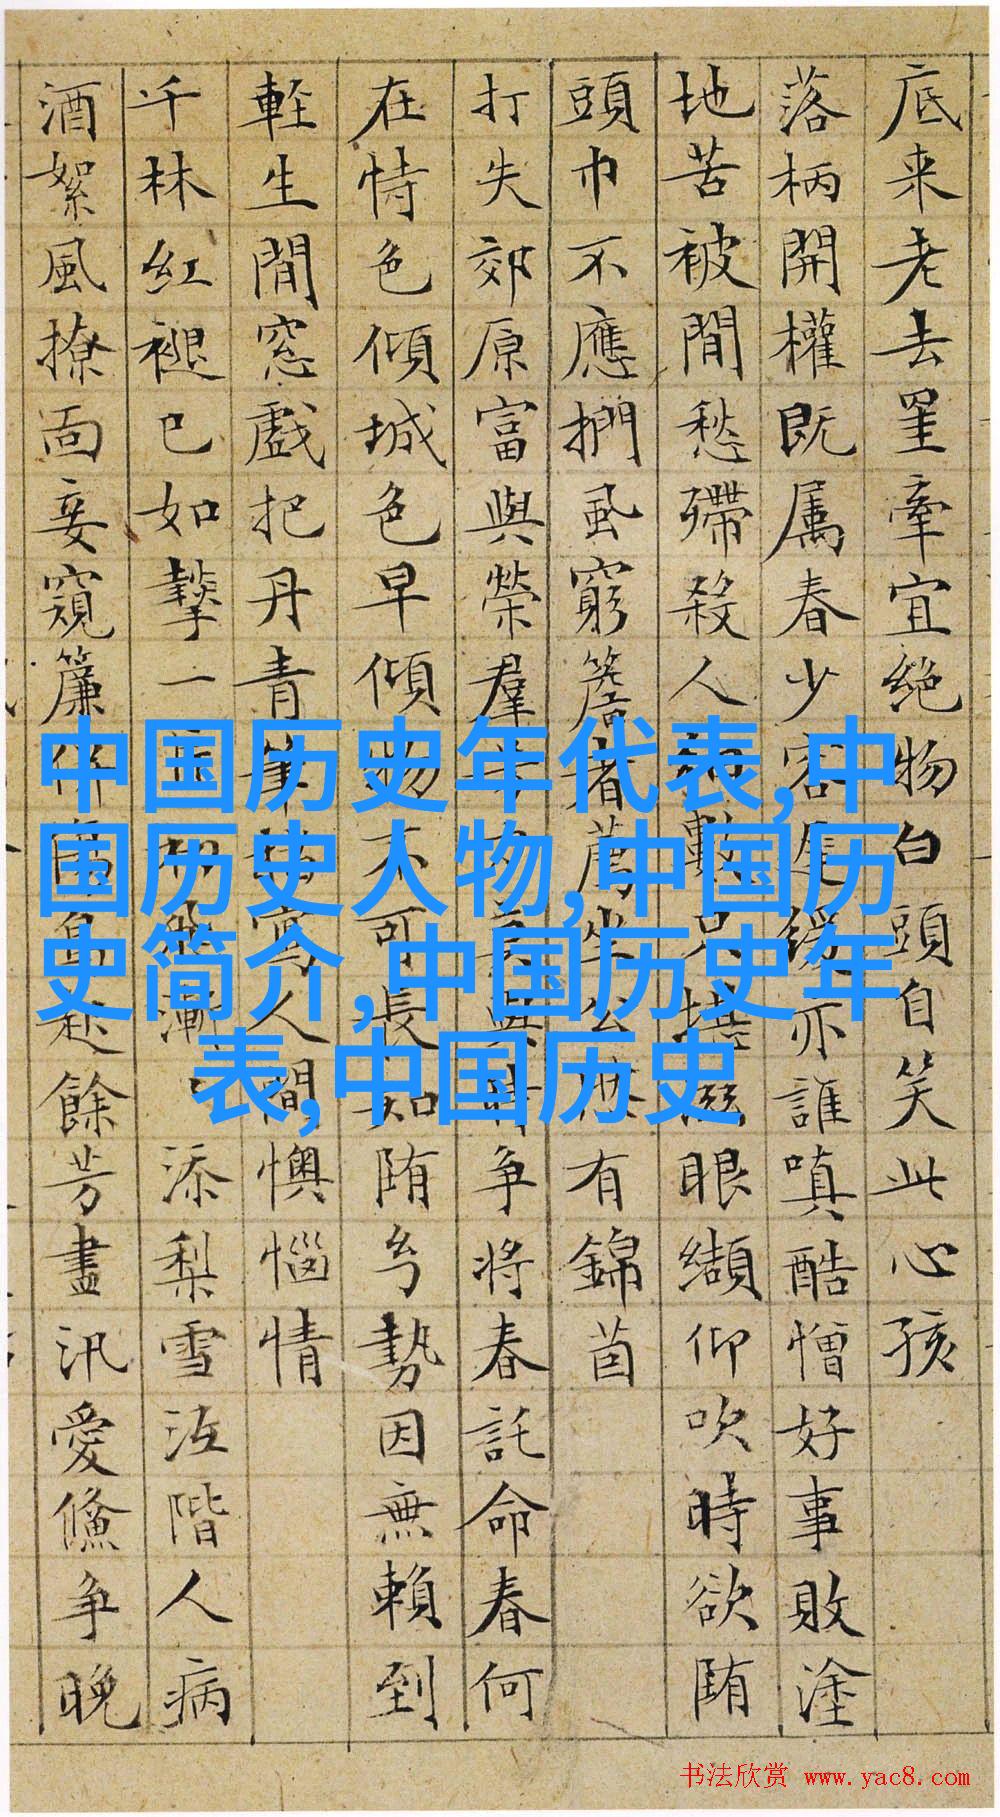 底来老去罣牽宜絶物白頭自笑此心孩
落柄開權既属春少容遲緩亦誰嗔酷憎好事敗塗
地苦被閒愁殢殺人數只堪眼纈仰吹時欲堕
頭巾不應捫虱窮簷者坐有錦茵
打失郊原富與榮羣與争将春託命春何
在恃色傾城色早傾物不可長如堕勢因無賴到
軽生閒窓戲把丹青筆寫人間懊惱情
千林紅褪已如一漸添梨雪沍階人病
酒絮風撩面妾窺簾趁餘芳盡汛愛争晚
中国历史年代表,中
国历史人物,中国历
史简介,中国历史年
表,中国历史
书法欣赏 www.yac8.com